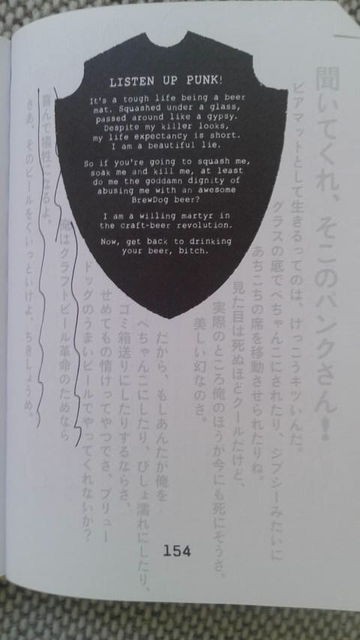 LISTEN UP PUNK!
It's a tough life being a beer
mat. Squashed under a glass,
passed around like a gypsy.
Despite my killer looks,
my life expectancy is short.
I am a beautiful lie.
So if you're going to squash me,
soak me and kill me, at least
do me the goddamn dignity of
abusing me with an awesome
BrewDog beer?
I am a willing martyr in
the craft-beer revolution.
Now, get back to drinking
your beer, bitch.
聞いてくれ、そこのパンクさん！
ビアマットとして生きるってのは、けっこうキツいんだ。
グラスの底でぺちゃんこにされたり、ジプシーみたいに
あちこちの席を移動させられたりね。
見た目は死ぬほどクールだけど、
実際のところ俺のほうが今にも死にそうさ。
美しい幻なのさ。
だから、もしあんたが俺を
ぺちゃんこにしたり、びしょ濡れにしたり、
ゴミ箱送りにしたりするならさ、
せめてもの情けってやつでさ、ブリュー
ドッグのうまいビールでやってくれないか？
俺はクラフトビール革命のためなら
喜んで犠牲になるよ。
さあ、そのビールをぐいっといけよ、ちきしょうめ。
154